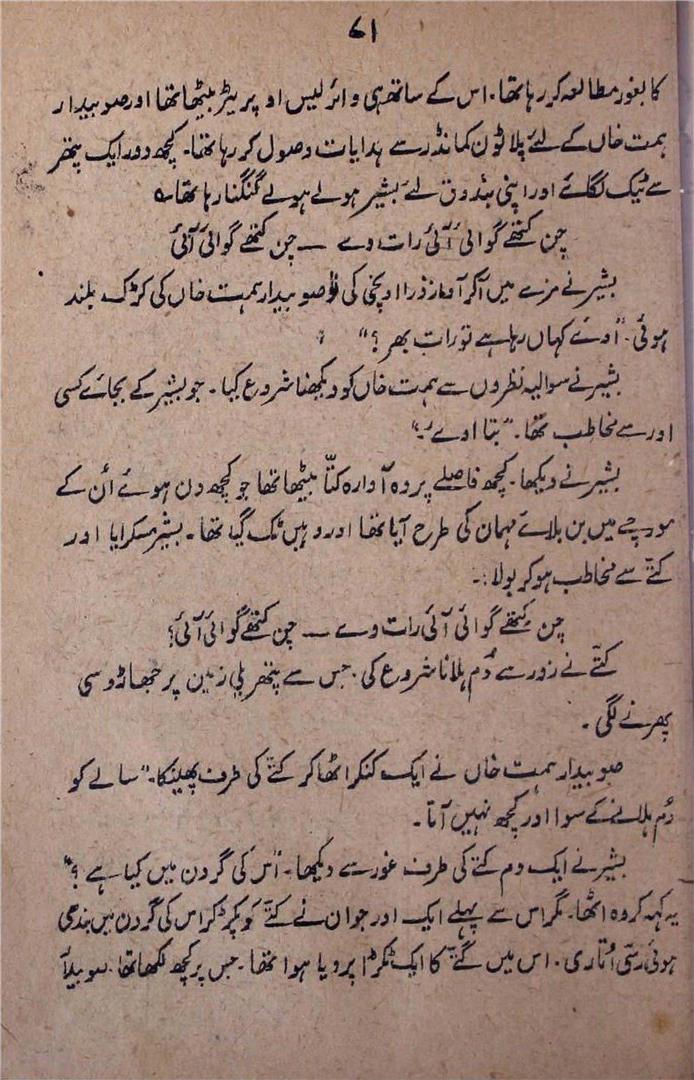 ۷۱
کا بغور مطالعہ کر رہا تھا۔ اس کے ساتھ ہی وائرلیس اوپریٹر بیٹھا تھا اور صوبیدار
ہمت خاں کے لئے پلاٹون کمانڈر سے ہدایات وصول کر رہا تھا۔ کچھ دور ایک پتھر
سے ٹیک لگائے اور اپنی بندوق لئے بشیر ہولے ہولے گنگنا رہا تھا۔
چن کتھے گوائی آئی رات وے — چن کتھے گوائی آئی
بشیر نے مزے میں آکر آواز ذرا اونچی کی تو صوبیدار ہمت خاں کی کڑک بلند
ہوئی۔ "اوئے کہاں رہا ہے تو رات بھر ؟"
بشیر نے سوالیہ نظروں سے ہمت خاں کو دیکھنا شروع کیا۔ جو بشیر کے بجائے کسی
اور سے مخاطب تھا۔ "بتا اوے"۔
بشیر نے دیکھا۔ کچھ فاصلے پر وہ آوارہ کتّا بیٹھا تھا جو کچھ دن ہوئے اُن کے
مورچے میں بن بلائے مہمان کی طرح آیا تھا اور وہیں ٹک گیا تھا۔ بشیر مسکرایا اور
کتے سے مخاطب ہو کر بولا :۔
چن کتھے گوائی آئی رات وے — چن کتھے گوائی آئی؟
کتے نے زور سے دُم ہلانا شروع کی۔ جس سے پتھریلی زمین پر جھاڑو سی
پھرنے لگی ۔
صوبیدار ہمت خاں نے ایک کنکر اٹھا کر کتے کی طرف پھینکا۔ "سالے کو
دُم ہلانے کے سوا اور کچھ نہیں آتا۔
بشیر نے ایک دم کتے کی طرف غور سے دیکھا۔ "اس کی گردن میں کیا ہے ؟"
یہ کہہ کر وہ اٹھا۔ مگر اس سے پہلے ایک اور جوان نے کتے کو پکڑ کر اس کی گردن میں بندھی
ہوئی رسّی اُتاری۔ اس میں گتے کا ایک ٹکڑا پرویا ہوا تھا۔ جس پر کچھ لکھا تھا۔